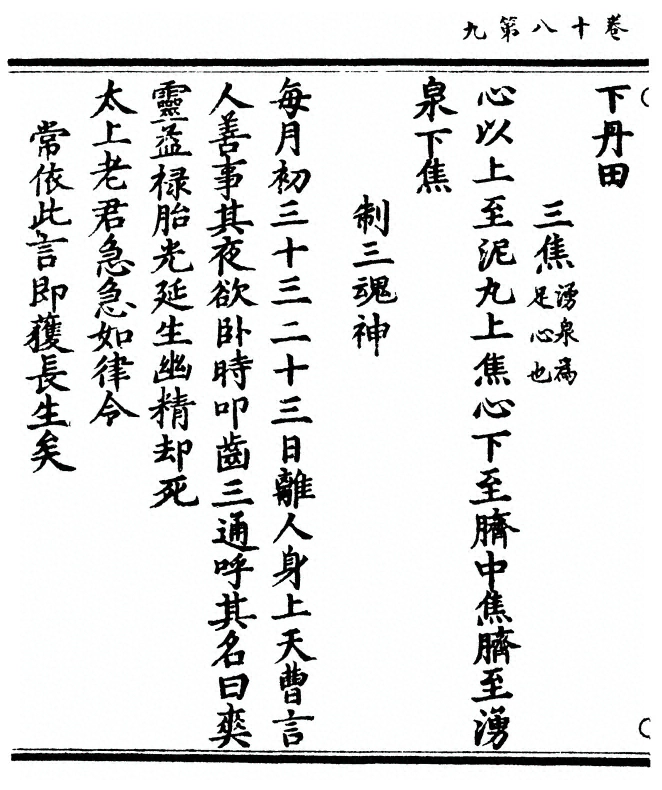 九第八十卷
下丹田
三焦湧泉為足心也
心以上至泥丸上焦心下至臍中焦臍至湧
泉下焦
制三魂神
每月初三十三二十三日離人身上天曹言
人善事其夜欲卧時叩齒三通呼其名曰爽
靈益禄胎光延生幽精却死
太上老君急急如律令
常依此言即獲長生矣